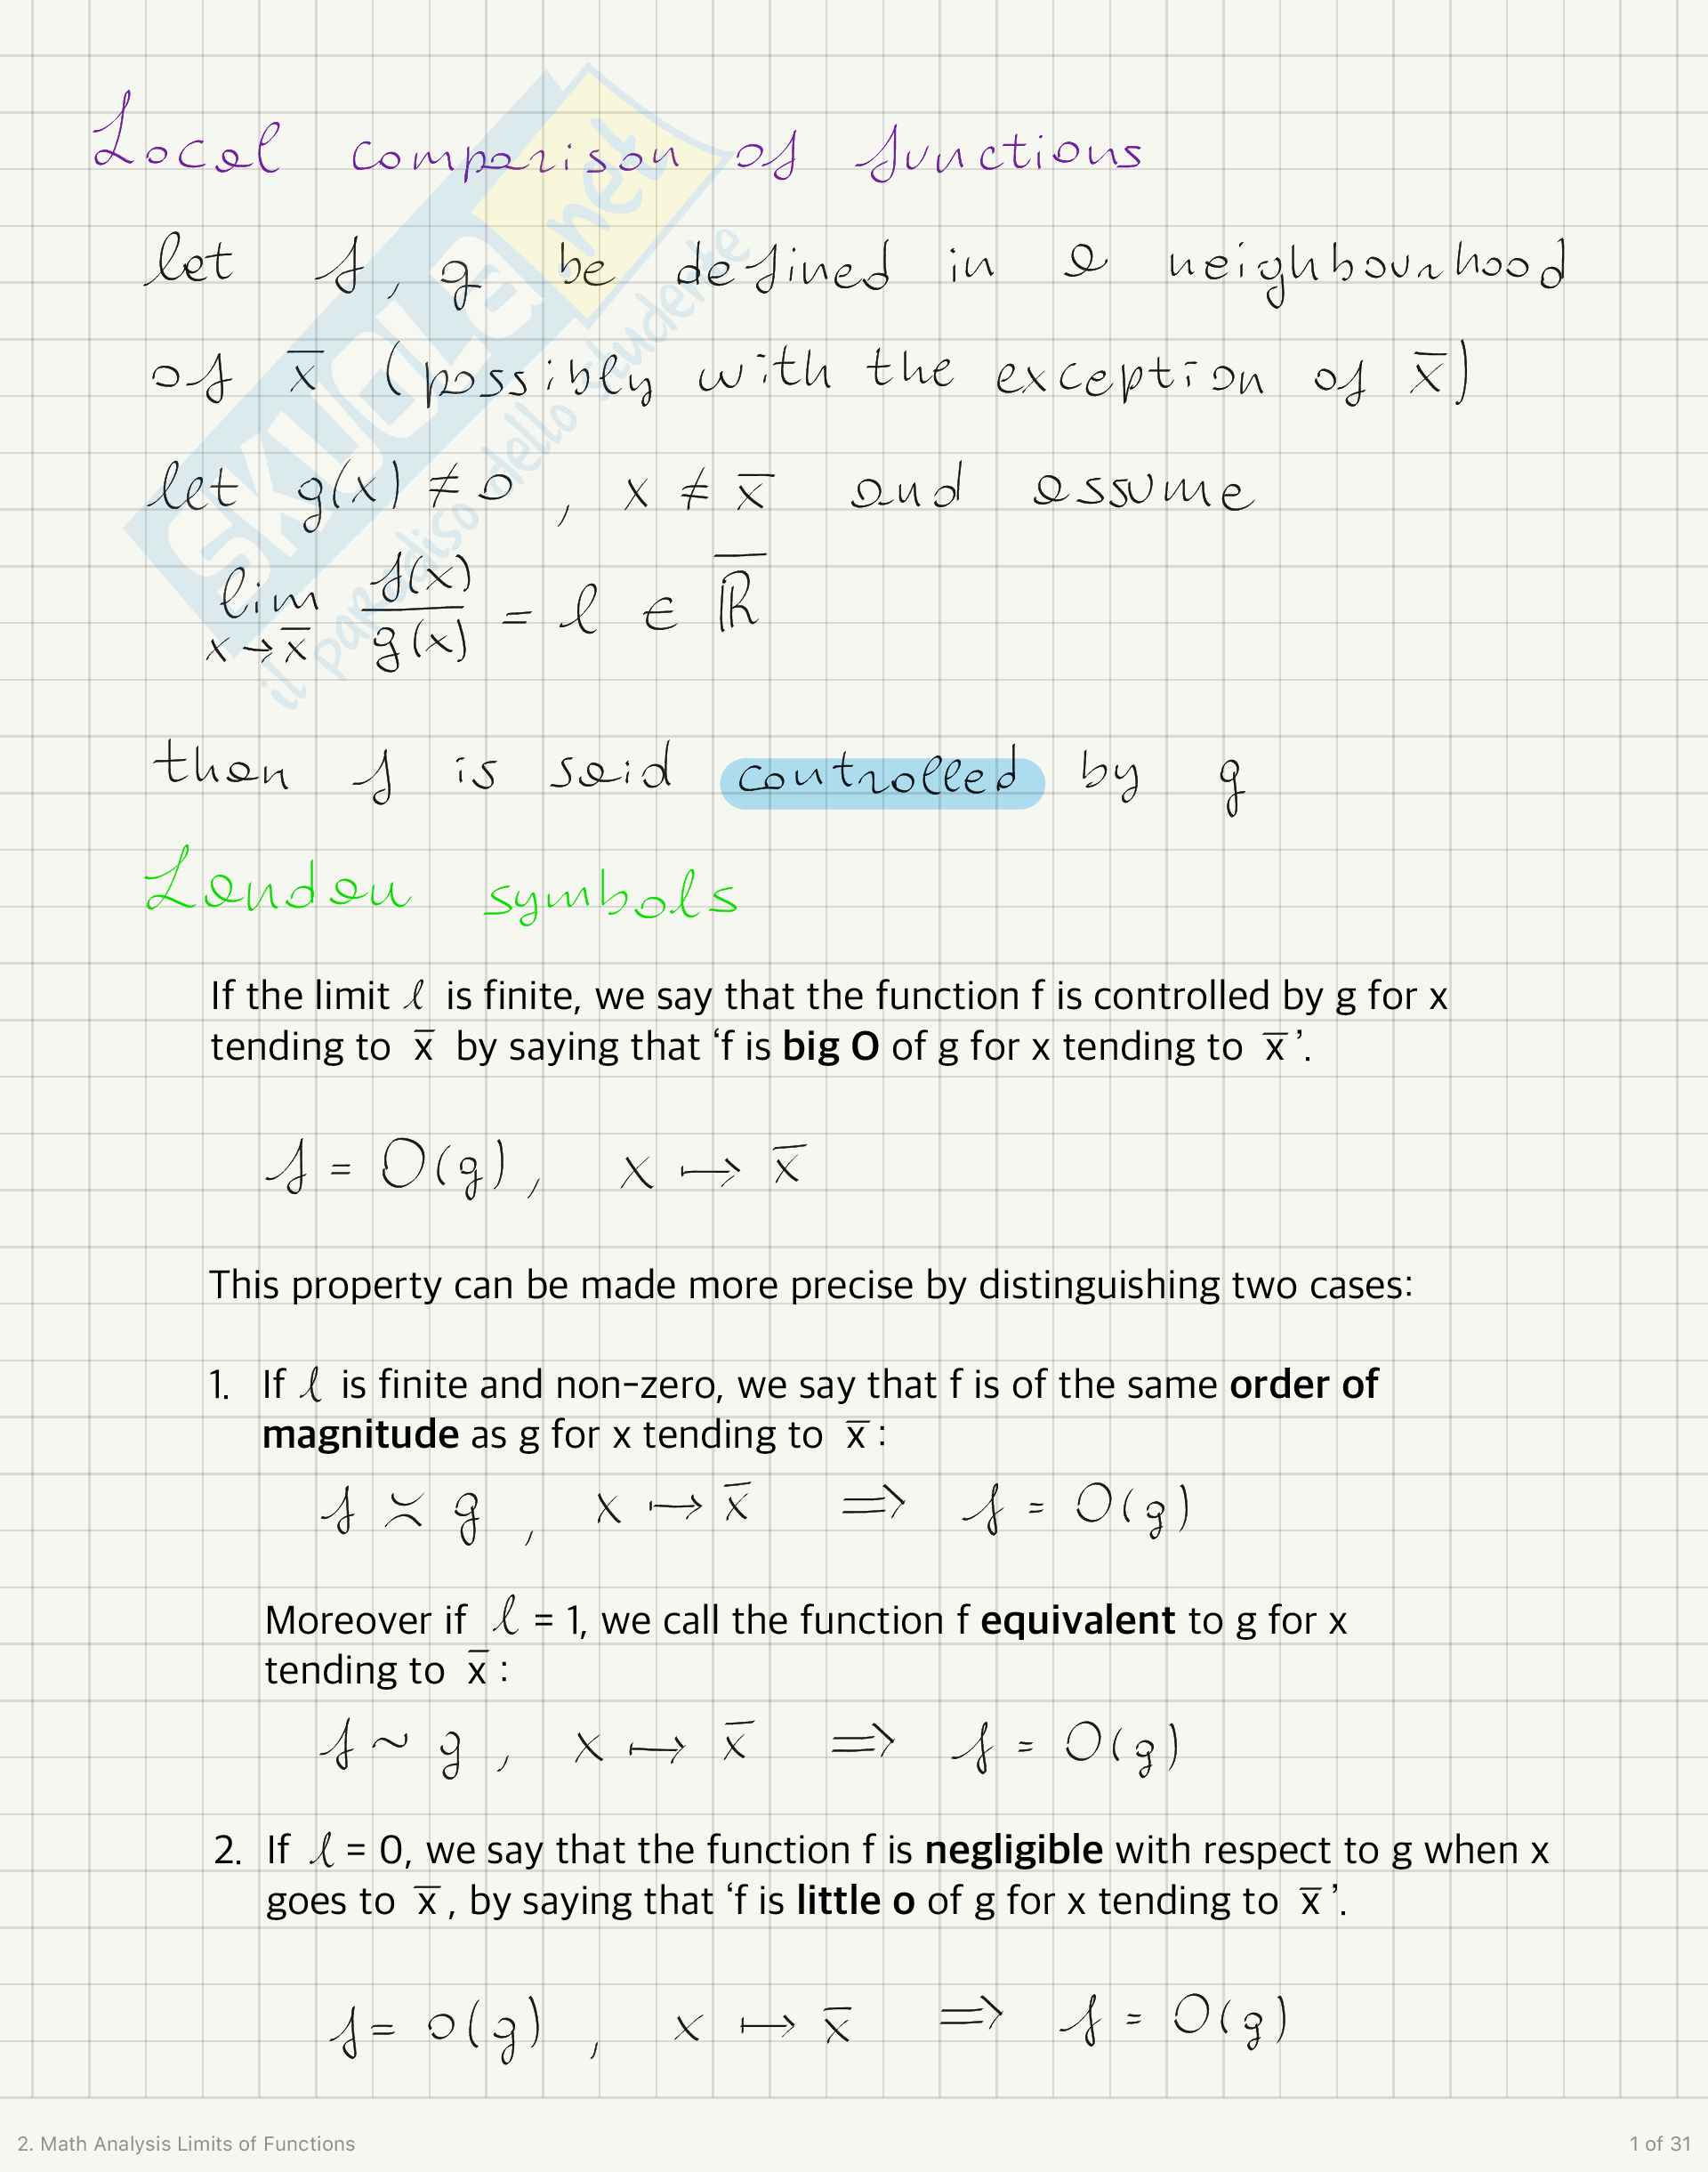 Local comparison of functions
let f, g be defined in a neighbourhood
of x̅ (possibly with the exception of x̅)
let g(x) ≠ 0 , x ≠ x̅ and assume
lim x→x̅ f(x)/g(x) = ℓ ∈ R̅
then f is said controlled by g
Landau symbols
If the limit ℓ is finite, we say that the function f is controlled by g for x
tending to x̅ by saying that ‘f is big O of g for x tending to x̅’.
f = O(g), x ↦ x̅
This property can be made more precise by distinguishing two cases:
1. If ℓ is finite and non-zero, we say that f is of the same order of
magnitude as g for x tending to x̅ :
f ≍ g , x ↦ x̅ ⟹ f = O(g)
Moreover if ℓ = 1, we call the function f equivalent to g for x
tending to x̅ :
f ~ g , x ↦ x̅ ⟹ f = O(g)
2. If ℓ = 0, we say that the function f is negligible with respect to g when x
goes to x̅ , by saying that ‘f is little o of g for x tending to x̅’.
f = o(g) , x ↦ x̅ ⟹ f = O(g)
SKUOLA.net
il paradiso dello studente
2. Math Analysis Limits of Functions
1 of 31